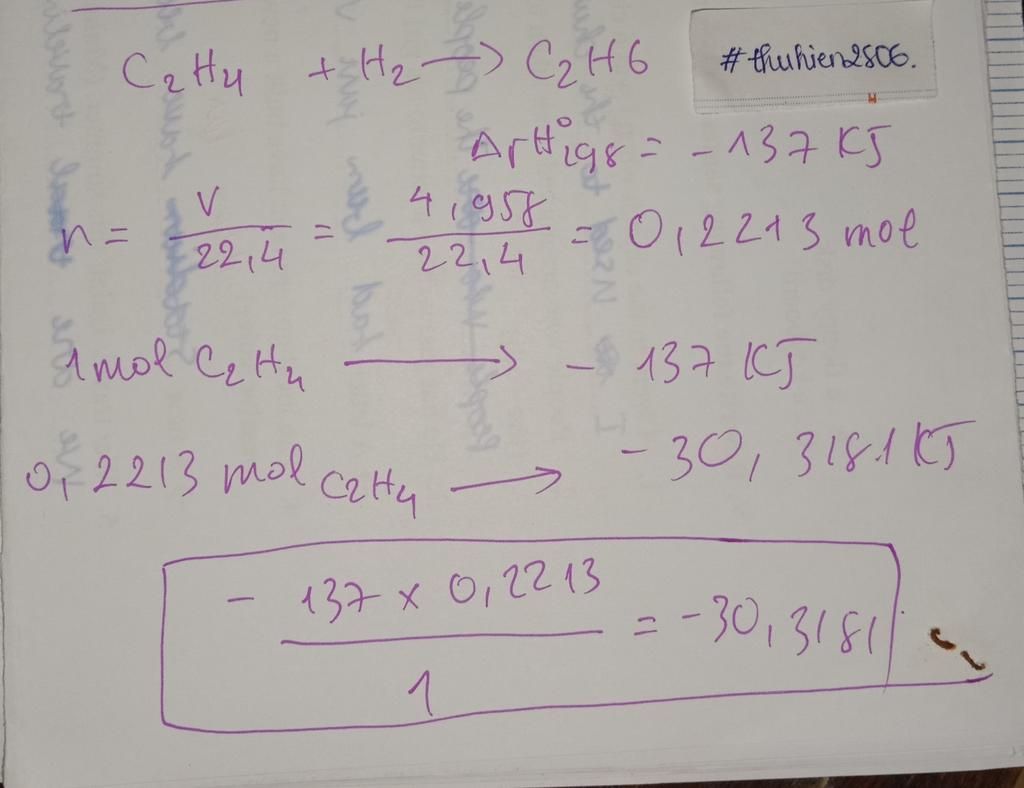 C2H4 + H2 → C2H6
#thuhien2806.
ΔrH°298 = -137 KJ
n = V/22,4 = 4,958/22,4 = 0,2213 mol
1 mol C2H4 → - 137 KJ
0,2213 mol C2H4 → -30,3181 KJ
- 137 x 0,2213/1 = -30,3181